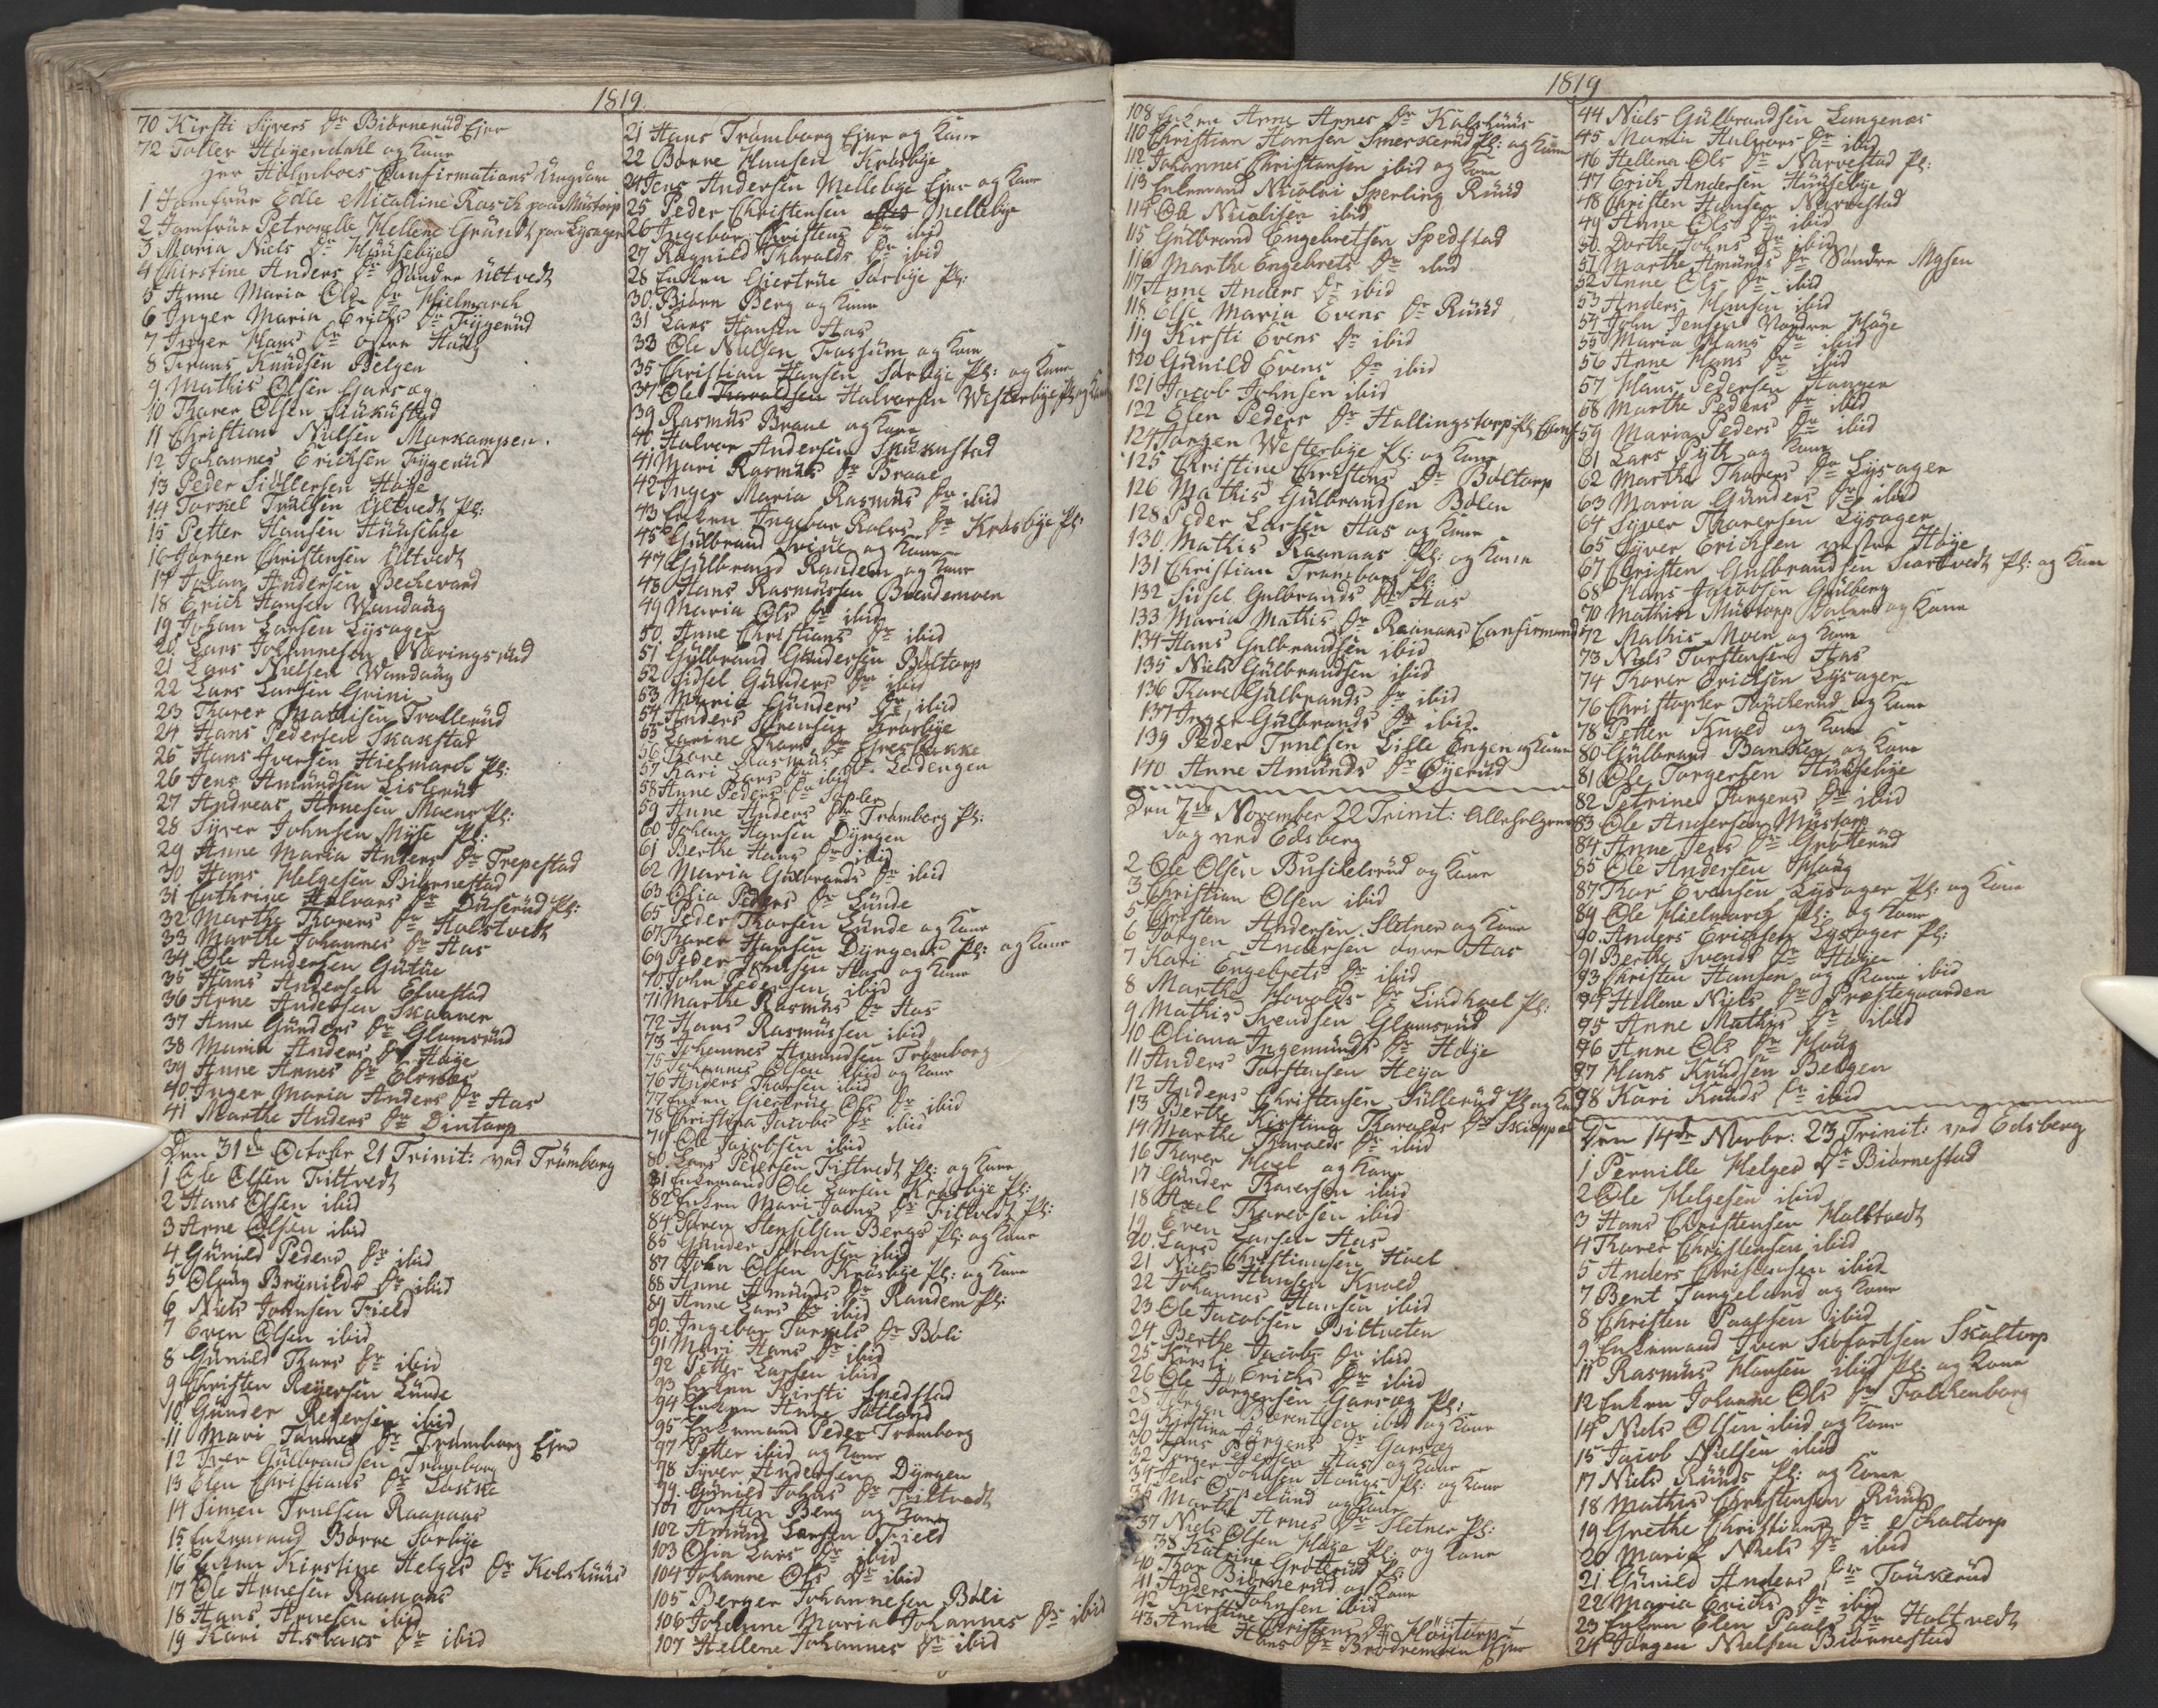 1819.
70 Kirsti Syvers Dr Biörnerud Ejer
72 Toller Höyendahl og Kone
Her Holmboes Confirmations Ungdom
1 Jomfrue Edle Micaeline Rasch paa Müstorp
2 Jomfrue Petronelle Hellene Gründt paa Lysager
3 Maria Niels Dr Huusebye
4 Christine Anders Dr Söndre Ultvedt
5 Anne Maria Ols Dr Hielmarck
6 Inger Maria Erichs Dr Fygerud
7 Inger Hans Dr østre Haug
8 Frans Knudsen Belgen
9 Mathis Olsen Garsæg
10 Thorer Olsen Skukustad
11 Christian Nielsen Morkampen.
12 Johannes Erichsen Fygerud
13 Peder Siöllersen Höye
14 Torkel Trulsen Ultvedt Pl:
15 Petter Hansen Huusebye
16 Jörgen Christensen Ultvedt
17 Johan Andersen Beckevard
18 Erich Hansen Wandaug
19 Johan Larsen Lysager
20 Lars Johannesen Næringsrud
21 Lars Nielsen Wandaug
22 Lars Larsen Grini
23 Thorer Mathisen Trollerud
24 Hans Pedersen Skakstad
25 Hans Iversen Hielmarck Pl:
26 Jens Amundsen Listerud
27 Andreas Arnesen Moens Pl:
28 Syver Johnsen Myse Pl:
29 Anne Maria Anders Dr Trepestad
30 Hans Helgesen Biörnestad
31 Cathrine Halvors Dr Duserud Pl:
32 Marthe Thorers Dr Holstvedt
33 Marthe Johannes Dr Aas
34 Ole Andersen Gutue
35 Hans Andersen Elvestad
36 Arne Andersen Skaaner
37 Anne Gunders Dr Glomsrud
38 Maria Anders Dr Höye
39 Anne Arnes Dr
40 Inger Maria Anders Dr Aas
41 Marthe Anders Dr Dintorp
Den 31de Octobr 21 Trinit: ved Trömborg
1 Ole Olsen Tiltvedt
2 Hans Olsen ibid
3 Arne Olsen ibid
4 Gunild Peders Dr ibid
5 Olaug Brynilds Dr ibid
6 Niels Johnsen Field
7 Even Olsen ibid
8 Gunild Thors Dr ibid
9 Christen Reyersen Lunde
10 Gunder Reyersen ibid
11 Mari Tommes Dr Trömborg Ejer
12 Iver Gulbrandsen Trömborg
13 Elen Christians Dr Løkke
14 Simen Trulsen Raanaas
15 Enkemand Börre Sörbye
16 Enken Kirstine Helges Dr Kolshuus
17 Ole Arnesen Raanaas
18 Hans Arnesen ibid
19 Kari Aslaks Dr ibid
21 Hans Trömborg Ejer og Kone
22 Börre Hansen Krosbye
24 Jens Andersen Mellebye Ejer og Kone
25 Peder Christensen Mellebye
26 Ingebor Christens Dr ibid
27 Ragnild Tharalds Dr ibid
28 Enken Giertrue Sörbye Pl:
30 Biörn Berg og Kone
31 Lars Hansen Aas
33 Ole Nielsen Fossum og Kone
35 Christian Hansen Sörbye Pl: og Kone
37 Ole Halvorsen Westerbye Pl: og Kone
39 Rasmus Braae og Kone
40 Halvor Andersen Skukustad
41 Mari Rasmus Dr Braae
42 Inger Maria Rasmus Dr ibid
43 Enken Ingebor Roers Dr Krosbye Pl:
45 Gulbrand og Kone
47 Gulbrand Randem og Kone
48 Hans Rasmussen Brendemoen
49 Maria Ols Dr ibid
50. Anne Christians Dr ibid
51 Gulbrand Gundersen Böltorp
52 Sidsel Gunders Dr ibid
53 Maria Gunders Dr ibid
54 Anders Sörensen Krosbye
55 Karine Thors Dr Gresbakke
56 Thore Rasmus Dr Ladengen
57 Kari Lars Dr ibid
58 Anne Peders Dr Topler
59 Anne Anders Dr Trömborg Pl:
60 Johan Hansen Dyngen
61 Berthe Hans Dr ibid
62 Maria Gulbrands Dr ibid
63 Osia Peders Dr Lunde
65 Peder Thorsen Lunde og Kone
67 Thorer Hansen Dyngens Pl: og Kone
69 Peder Johnsen Aas og Kone
70. John Pedersen ibid
71 Marthe Rasmus Dr Aas
72 Hans Rasmussen ibid
73 Johannes Amundsen Trömborg
75 Johannes Olsen ibid og Kone
76 Anders Thorsen ibid
77 Enken Giertrue Ols Dr ibid
78 Christina Jacobs Dr ibid
79 Ole Jacobsen ibid
80. Lars Pedersen Tiltvedt Pl: og Kone
81 Enkemand Ole Larsen Krosbye Pl:
82 Enken Mari Joens Dr Tiltvedt Pl:
84 Sören Stenselsen Bergs Pl: og Kone
85 Gunder Sörensen ibid
87 John Olsen Krosbye Pl: og Kone
88 Anne Amunds Dr Randem Pl:
89 Anne Lars Dr ibid
90. Ingebor Torkels Dr Böli
91 Mari Hans Dr ibid
92 Petter Larsen ibid
93 Enken Kirsti Spedstad
94 Enken Anne Sötland
95 Enkemand Peder Trömborg
97 Petter ibid og Kone
98 Syver Andersen Dyngen
99. Gunild Johns Dr Tiltvedt
101 Torsten Berg og Kone
102 Amund Larsen Field
103 Osia Lars Dr ibid
104 Johanne Ols Dr ibid
105 Berger Johannesen Böli
106 Johanne Maria Johannes Dr ibid
107 Hellene Johannes Dr ibid
1819
108 Enken Anne Arnes Dr Kolshuus
110 Christian Hansen Smerkerud Pl: og Kone
112 Johannes Christensen ibid og Kone
113 Enkemand Nicolai Sperling Ruud
114 Ole Nicolisen ibid
115 Gulbrand Engebretsen Spedstad
116 Marthe Engebrets Dr ibid
117 Anne Anders Dr ibid
118. Else Maria Evens Dr Ruud
119 Kirsti Evens Dr ibid
120 Gunild Evens Dr ibid
121 Jacob Johnsen ibid
122 Elen Peders Dr Hallingstorp Pl: Conf
124 Jörgen Westerbye Pl: og Kone
125 Christine Christens Dr Boltorp
126 Mathis Gulbrandsen Bölen
128 Peder Larsen Aas og Kone
130 Mathis Raanaas Pl: og Kone
131 Christian Trömborg Pl:
132 Sidsel Gulbrands Dr Aas
133 Maria Mathis Dr Raanaas Confirmand
134 Hans Gulbrandsen ibid
135 Niels Gulbrandsen ibid
136 Thore Gulbrands Dr ibid
137 Inger Gulbrands Dr ibid.
139 Peder Trulsen Lille Engen og Kone
140 Anne Amunds Dr Öyerud
Den 7de November 22 Trinit: Allehelgens
dag ved Edsberg
2 Ole Olsen Busickelsrud og Kone
3 Christian Olsen ibid
5 Christen Andersen Sletner og Kone
6 Jörgen Andersen øvre Aas
7 Kari Engebrets Dr ibid
8 Marthe Harolds Dr Lindhoel Pl:
9 Mathis Svendsen Glomsrud
10 Oliana Ingemunds Dr Höye
11 Anders Torstensen Heya
12 Anders Christensen Sullerud Pl og Kone
13 Berthe Kirstina Tharalds Dr
14 Marthe Tharalds Dr ibid
16 Thorer Hoel og Kone
17 Gunder Thorersen ibid
18 Axel Thorersen ibid
19 Even Larsen Aas
20. Lars Christiansen Hoel
21 Niels Hansen Knold
22 Johannes Hansen ibid
23 Ole Jacobsen Biltveten
24 Berthe Jacobs Dr ibid
25 Kirsti Erichs Dr ibid
26 Ole Jörgensen Garsæg Pl:
28 Jörgen Berentsen ibid og Kone
29 Kirstina Jörgens Dr Garsæg
30 Hans Pedersen Aas og Kone
32 Torger Johnsen Haugs Pl: og Kone
34 Jens Opelund og Kone
35 Marte Arnes Dr Sletner Pl:
37 Niels Olsen Höye Pl: og Kone
38 Katrine Grötterud Pl:
40 Thor Biörnerud og Kone
41 Anders Johnsen ibid
42 Kirstine Christens Dr Höytorp
43 Anne Hans Dr Brödremoen Ejer
44 Niels Gulbrandsen Langenæs
45 Maria Halvors Dr ibid
46 Hellena Ols Dr Narvestad Pl:
47 Erich Andersen Huusebye
48 Christen Hansen Narvestad
49 Anne Ols Dr ibid
50. Dorthe Johns Dr ibid
51 Marthe Amunds Dr Söndre Mysen
52 Anne Ols Dr ibid
53 Anders Hansen ibid
54 John Jensen Nordre Höye
55 Maria Hans Dr ibid
56 Anne Hans Dr ibid
57 Hans Pedersen Hangen
58 Marthe Peders Dr ibid
59 Maria Peders Dr ibid
61 Lars Pyth og Kone
62 Marthe Thorers Dr Lysager
63 Maria Gunders Dr ibid
64 Syver Thorersen Lysager
65 Syver Erichsen vestre Höye
67 Christen Gulbrandsen Kartvedt Pl: og Kone
68 Hans Jacobsen Gulberg
70 Mathis Müstorp og Kone
72 Mathis Moen og Kone
73 Niels Torstensen Aas
74 Thorer Erichsen Lysager
76 Christopher Töukerud og Kone
78 Petter Knold og Kone
80 Gulbrand Banken og Kone
81 Ole Torgersen Huusebye
82 Petrine Torgers Dr ibid
83 Ole Andersen Müstorp
84 Anne Jens Dr Grötterud
85 Ole Andersen Haug
87 Thor Evensen Lysager Pl: og Kone
89 Ole Hielmarck Pl: og Kone
90. Anders Erichsen Lysager Pl:
91 Berthe Svends Dr Höye
93 Christen Hansen og Kone ibid
94 Hellene Niels Dr Præstegaarden
95 Anne Mathis Dr ibid
96 Anne Ols Dr Haug
97 Hans Knudsen Belgen
98 Kari Knuds Dr ibid
Den 14de Novbr: 23 Trinit: ved Edsberg
1 Pernille Helges Dr Biörnestad
2 Ole Helgesen ibid
3 Hans Christensen Holstvedt
4 Thorer Christensen ibid
5 Anders Christensen ibid
7 Bent Fangeland og Kone
8 Christen Paalsen ibid
9 Enkemand Iver Sivfartsen Skaltorp
11 Rasmus Hansen ibid Pl: og Kone
12 Enken Johanne Ols Dr Falckenborg
14 Niels Olsen ibid og Kone
15 Jacob Nielsen ibid
17 Niels Ruuds Pl: og Kone
18 Mathis Christensen Ruud
19 Grethe Christians Dr Skaltorp
20 Maria Niels Dr ibid
21 Gunild Anders Dr Töukerud
22 Maria Erichs Dr ibid
23 Enken Elen Paals Dr Holtvedt
24 Jörgen Nielsen Biörnestad